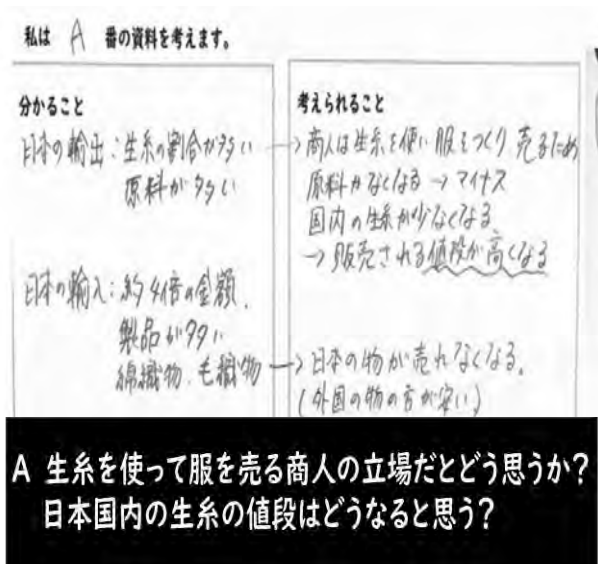 私は A 番の資料を考えます。
分かること
日本の輸出：生糸の割合が多い
原料が多い
日本の輸入：約4倍の金額、
製品が多い
綿織物、毛織物
考えられること
→商人は生糸を使い服をつくり売るため
原料がなくなる→マイナス
国内の生糸が少なくなる
→販売される値段が高くなる
→日本の物が売れなくなる。
（外国の物の方が安い）
A 生糸を使って服を売る商人の立場だとどう思うか？
日本国内の生糸の値段はどうなると思う？